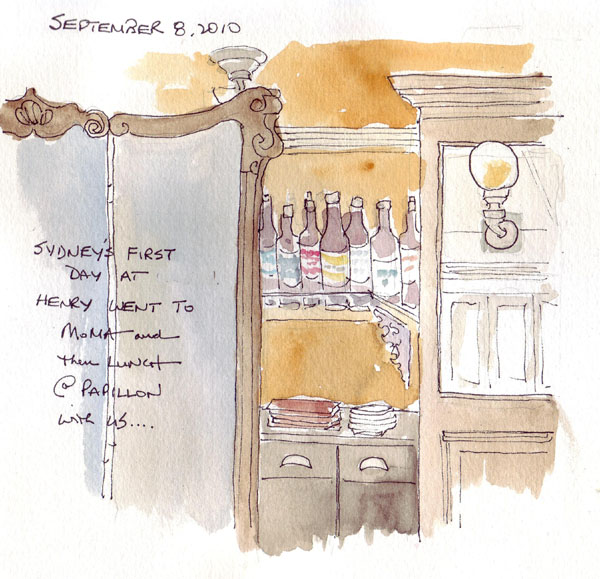 SEPTEMBER 8, 2010
SYDNEY'S FIRST
DAY AT
HENRY WENT TO
MoMA and
then LUNCH
@ PAPILLON
with us....